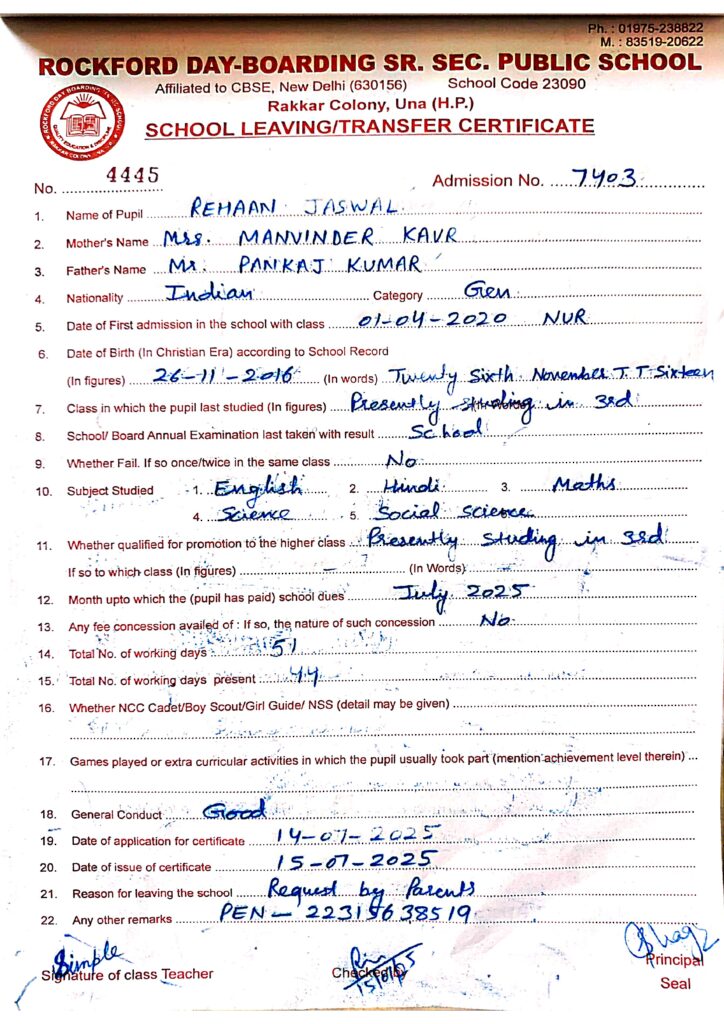 Ph. : 01975-238822
M. : 83519-20622
ROCKFORD DAY-BOARDING SR. SEC. PUBLIC SCHOOL
Affiliated to CBSE, New Delhi (630156) School Code 23090
Rakkar Colony, Una (H.P.)
SCHOOL LEAVING/TRANSFER CERTIFICATE
No. 4445 Admission No. 7403
1. Name of Pupil REHAAN JASWAL
2. Mother's Name Mrs. MANVINDER KAUR
3. Father's Name Mr. PANKAJ KUMAR
4. Nationality Indian Category Gen
5. Date of First admission in the school with class 01-04-2020 NUR
6. Date of Birth (In Christian Era) according to School Record
(In figures) 26-11-2016 (In words) Twenty Sixth November T.T. Sixteen
7. Class in which the pupil last studied (In figures) Presently studing in 3rd
8. School/ Board Annual Examination last taken with result School
9. Whether Fail. If so once/twice in the same class No
10. Subject Studied 1. English 2. Hindi 3. Maths
4. Science 5. Social Science
11. Whether qualified for promotion to the higher class Presently studing in 3rd
If so to which class (In figures) (In Words)
12. Month upto which the (pupil has paid) school dues July 2025
13. Any fee concession availed of : If so, the nature of such concession No
14. Total No. of working days 51
15. Total No. of working days present 44
16. Whether NCC Cadet/Boy Scout/Girl Guide/ NSS (detail may be given)
17. Games played or extra curricular activities in which the pupil usually took part (mention achievement level therein)
18. General Conduct Good
19. Date of application for certificate 14-07-2025
20. Date of issue of certificate 15-07-2025
21. Reason for leaving the school Request by Parents
22. Any other remarks PEN - 22315638519
Simple
Signature of class Teacher Checked by Principal
Seal